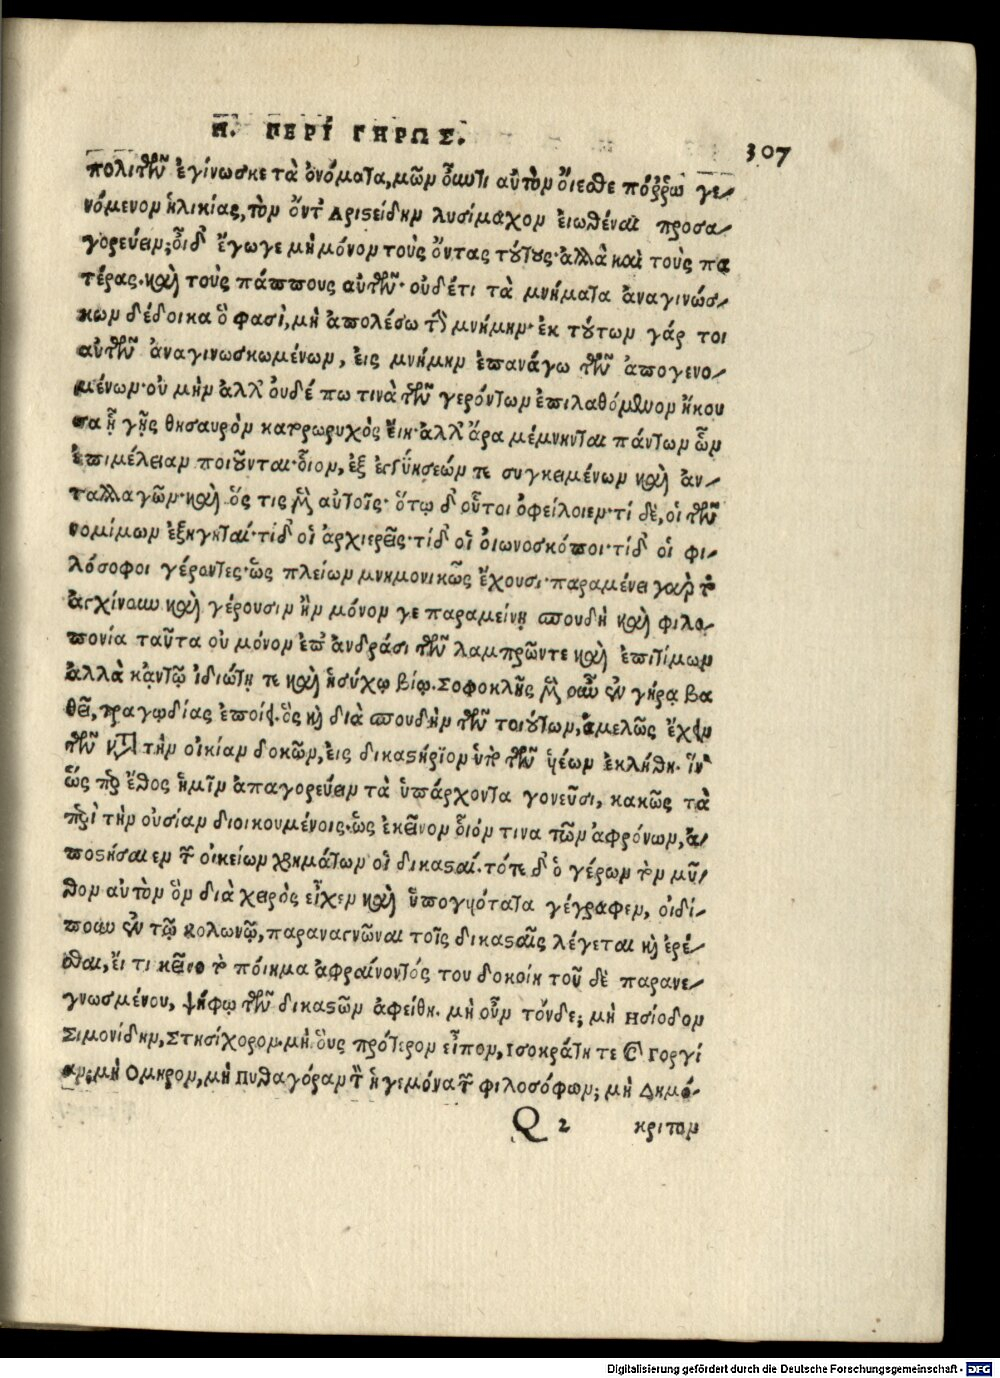 Η. ΠΕΡΊ ΓΗΡΩΣ.
307
πολιτῶν ἐγίνωσκε τὰ ὀνόματα, μῶν οὖν τι αὐτὸν ὄιεσθε πόῤῥω γε-
νόμενον ἡλικίας, τὸν ὄντ᾽ Αριστείδην λυσίμαχον ειωθέναι προσα-
γορεύειν; οἶδ᾽ ἔγωγε μὴ μόνον τοὺς ὄντας τούτους· ἀλλὰ καὶ τοὺς πα
τέρας. καὶ τοὺς πάππους αὐτῶν· ουδέτι τὰ μνήματα ἀναγινώσ-
κων δέδοικα ὅ φασὶ, μὴ ἀπολέσω τὴν μνήμην· ἐκ τούτων γάρ τοι
αὐτῶν ἀναγινωσκωμένων, εἰς μνήμην ἐπανάγω τῶν ἀπογενο-
μένων· οὐ μὴν ἀλλ᾽ ὀυδέ πω τινὰ τῶν γερόντων ἐπιλαθόμενον ἤκου
σα ᾗ γῆς θησαυρὸν κατορωρυχὸς ἔιη· ἀλλ᾽ ἄρα μέμνηνται πάντων ὧν
ἐπιμέλειαν ποιοῦνται· οἷον, ἐξ ἐγγυήσεών τε συγκειμένων καὶ ἀν-
ταλλαγῶν· καὶ ὅς τις μὲν αὐτοῖς· ὅτῳ δ᾽ οὗτοι ὀφείλοιεν· τί δὲ, οἱ τῶν
νομίμων ἐξηγηταί· τί δ᾽ οἱ ἀρχιερεῖς· τί δ᾽ οἱ ὀιωνοσκόποι· τί δ᾽ οἱ φι-
λόσοφοι γέροντες· ὡς πλείων μνημονικῶς ἔχουσι· παραμένει γὰρ τὸ
ἀγχίνουν καὶ γέρουσιν ἢν μόνον γε παραμείνῃ σπουδὴ καὶ φιλο-
πονία ταῦτα οὐ μόνον ἐπ᾽ ἀνδράσι τῶν λαμπρῶντε καὶ ἐπιτίμων
ἀλλὰ κἀντῷ ἰδιώτῃ τε καὶ ἡσύχῳ βίῳ. Σοφοκλῆς μὲν γοῦν ἐν γήρᾳ βα
θεῖ, τραγῳδίας ἐποίει. ὃς καὶ διὰ σπουδὴν τῶν τοιούτων, ἀμελῶς ἔχειν
τῶν κατὰ τὴν οἰκίαν δοκῶν, εἰς δικαστήριον ὑπὸ τῶν υἱέων ἐκλήθη. ἵν᾽
ὥς περ ἔθος ἡμῖν ἀπαγορεύειν τὰ ὑπάρχοντα γονεῦσι, κακῶς τὰ
περὶ τὴν οὐσίαν διοικουμένοις. ὡς ἐκεῖνον οἷόν τινα τῶν ἀφρόνων, ἀ-
ποστήσαιεν τῶν οἰκείων χρημάτων οἱ δικασταί. τότε δ᾽ ὁ γέρων τὸν μῦ-
θον αὐτὸν ὃν διὰ χειρὸς εἶχεν καὶ ὑπογυιότατα γέγραφεν, οἰδί-
πουν ἐν τῷ κολωνῷ, παραναγνῶναι τοῖς δικασταῖς λέγεται καὶ ἐρέ-
σθαι, ἔι τι κεῖνο τὸ πόιημα ἀφραίνοντός του δοκοίη τοῦ δὲ παρανε-
γνωσμένου, ψήφῳ τῶν δικαστῶν ἀφείθη. μὴ οὖν τόνδε; μὴ Ησίοδον
Σιμονίδην, Στησίχορον. μὴ ὅυς πρότερον εἶπον, Ισοκράτη τε καὶ Γοργί
αν; μὴ Ομηρον, μὴ Πυθαγόραν τὸν ἡγεμόνα τῶν φιλοσόφων; μὴ Δημό-
Q 2 κριτον
Digitalisierung gefördert durch die Deutsche Forschungsgemeinschaft - DFG